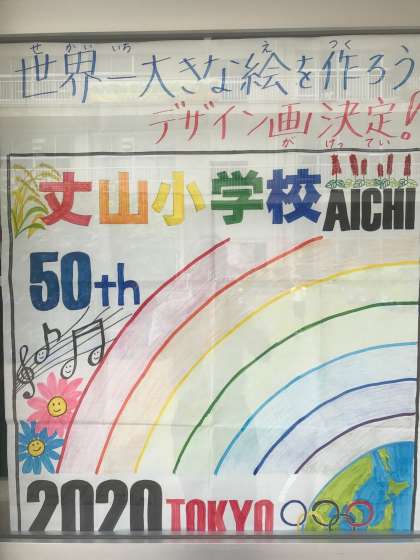 せかいいち え つく
世界一大きな絵を作ろう
デザイン画決定!
が けっ てい
丈山小学校
AICHI
50th
2020 TOKYO